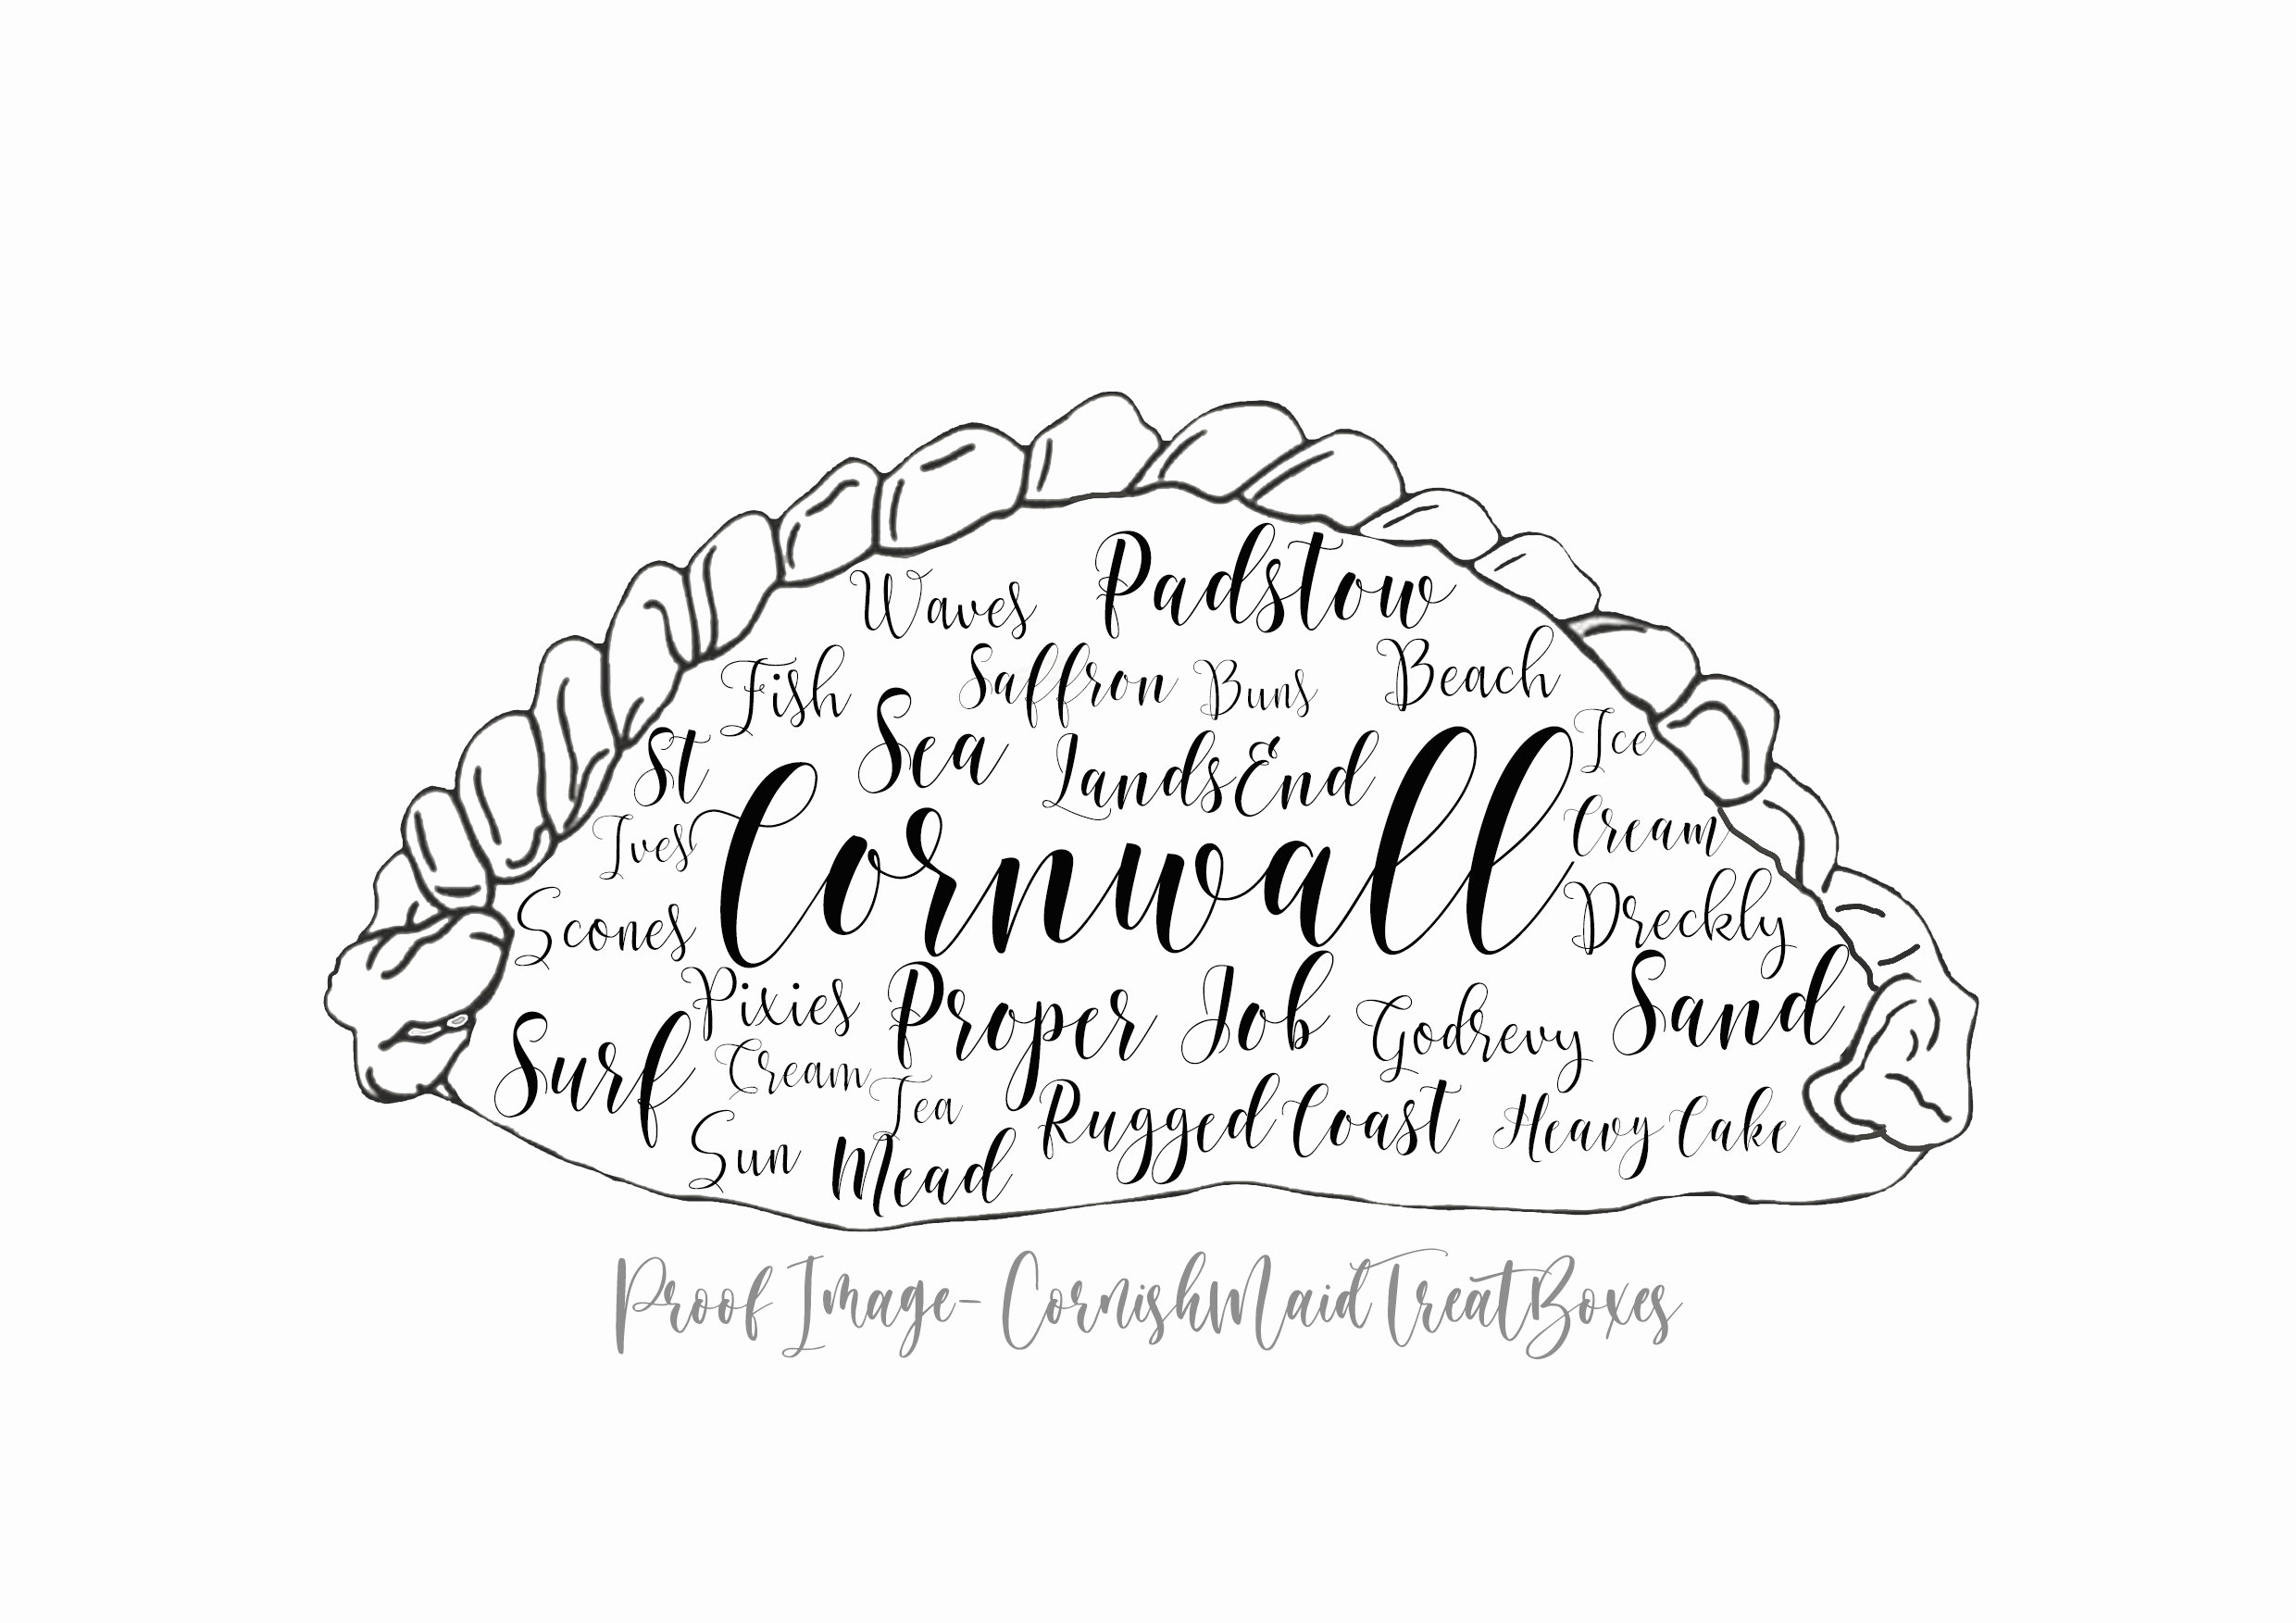 Waves Padstow
Fish Saffron Buns Beach
St Sea Lands End Ice
Ives Cornwall Cream
Scones Dreckly
Pixies Proper Job Godrevy Sand
Surf Cream Tea Rugged Coast Heavy Cake
Sun Mead
Proof Image- CornishMaidTreatBoxes